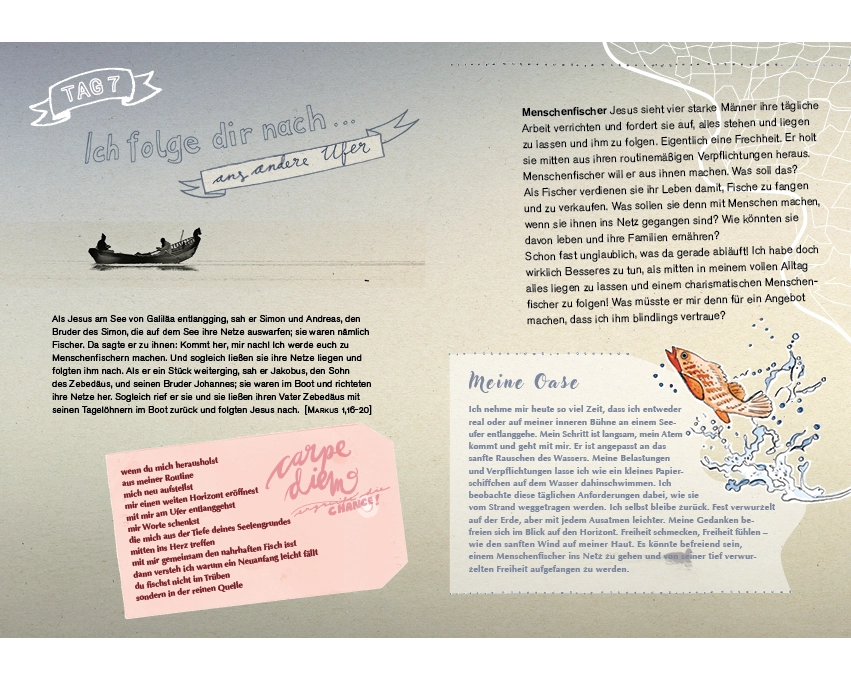 TAG 7
Ich folge dir nach ...
ans andere Ufer
Als Jesus am See von Galiläa entlangging, sah er Simon und Andreas, den
Bruder des Simon, die auf dem See ihre Netze auswarfen; sie waren nämlich
Fischer. Da sagte er zu ihnen: Kommt her, mir nach! Ich werde euch zu
Menschenfischern machen. Und sogleich ließen sie ihre Netze liegen und
folgten ihm nach. Als er ein Stück weiterging, sah er Jakobus, den Sohn
des Zebedäus, und seinen Bruder Johannes; sie waren im Boot und richteten
ihre Netze her. Sogleich rief er sie und sie ließen ihren Vater Zebedäus mit
seinen Tagelöhnern im Boot zurück und folgten Jesus nach. [Markus 1,16-20]
wenn du mich herausholst
aus meiner Routine
mich neu aufstellst
mir einen weiten Horizont eröffnest
mit mir am Ufer entlanggehst
mir Worte schenkst
die mich aus der Tiefe deines Seelengrundes
mitten ins Herz treffen
mit mir gemeinsam den nahrhaften Fisch isst
dann versteh ich warum ein Neuanfang leicht fällt
du fischst nicht im Trüben
sondern in der reinen Quelle
carpe
diem
ergreife die
CHANCE!
Menschenfischer Jesus sieht vier starke Männer ihre tägliche
Arbeit verrichten und fordert sie auf, alles stehen und liegen
zu lassen und ihm zu folgen. Eigentlich eine Frechheit. Er holt
sie mitten aus ihren routinemäßigen Verpflichtungen heraus.
Menschenfischer will er aus ihnen machen. Was soll das?
Als Fischer verdienen sie ihr Leben damit, Fische zu fangen
und zu verkaufen. Was sollen sie denn mit Menschen machen,
wenn sie ihnen ins Netz gegangen sind? Wie könnten sie
davon leben und ihre Familien ernähren?
Schon fast unglaublich, was da gerade abläuft! Ich habe doch
wirklich Besseres zu tun, als mitten in meinem vollen Alltag
alles liegen zu lassen und einem charismatischen Menschen-
fischer zu folgen! Was müsste er mir denn für ein Angebot
machen, dass ich ihm blindlings vertraue?
Meine Oase
Ich nehme mir heute so viel Zeit, dass ich entweder
real oder auf meiner inneren Bühne an einem See-
ufer entlanggehe. Mein Schritt ist langsam, mein Atem
kommt und geht mit mir. Er ist angepasst an das
sanfte Rauschen des Wassers. Meine Belastungen
und Verpflichtungen lasse ich wie ein kleines Papier-
schiffchen auf dem Wasser dahinschwimmen. Ich
beobachte diese täglichen Anforderungen dabei, wie sie
vom Strand weggetragen werden. Ich selbst bleibe zurück. Fest verwurzelt
auf der Erde, aber mit jedem Ausatmen leichter. Meine Gedanken be-
freien sich im Blick auf den Horizont. Freiheit schmecken, Freiheit fühlen –
wie den sanften Wind auf meiner Haut. Es könnte befreiend sein,
einem Menschenfischer ins Netz zu gehen und von seiner tief verwur-
zelten Freiheit aufgefangen zu werden.